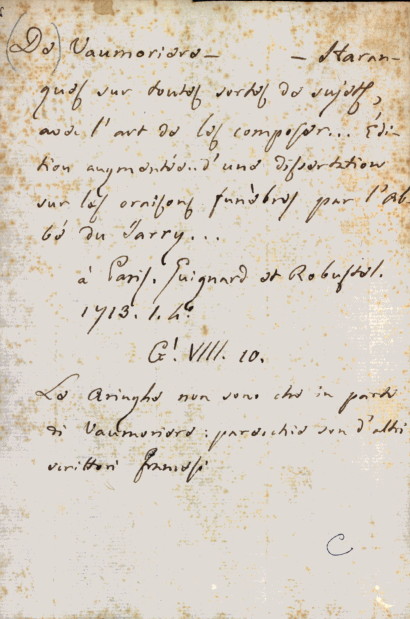 (De) Vaumoriere — — Haran-
gues sur toutes sortes de sujets,
avec l'art de les composer... Édi-
tion augmentée.. d'une dissertation
sur les oraisons funèbres par l'Ab-
bé du Jarry...
à Paris. Guignard et Robustel.
1713. 1. 4.º
G! VIII. 10.
Le Aringhe non sono che in parte
di Vaumoriere: parecchie son d'altri
scrittori francesi
C